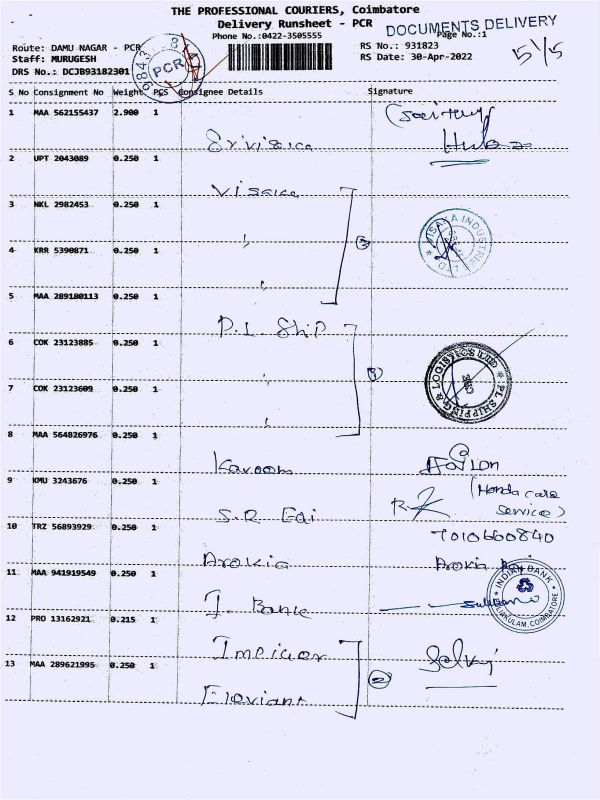 THE PROFESSIONAL COURIERS, Coimbatore
Delivery Runsheet - PCR
DOCUMENTS DELIVERY
Phone No.:0422-3505555
Page No.:1
Route: DAMU NAGAR - PCR
RS No.: 931823
Staff: MURUGESH
RS Date: 30-Apr-2022
DRS No.: DCJB93182301
PCR
S No Consignment No Weight PCS Consignee Details Signature
1 MAA 562155437 2.900 1
Srivisaka
2 UPT 2043089 0.250 1
Visaka
3 NKL 2982453 0.250 1
VISAKA INDUSTRIES LTD
4 KRR 5390871 0.250 1
5 MAA 289180113 0.250 1
P.L. Ship
6 COK 23123885 0.250 1
PL SHIPPING & LOGISTICS LTD
7 COK 23123609 0.250 1
8 MAA 564826976 0.250 1
Kavoom
9 KMU 3243676 0.250 1
(Honda care
service)
S.R. Eqi
7010660840
10 TRZ 56893929 0.250 1
Arokia Arokia
11 MAA 941919549 0.250 1
INDIAN BANK
I. Bank
12 PRO 13162921 0.215 1
Impiger
Selvi
13 MAA 289621995 0.250 1
2